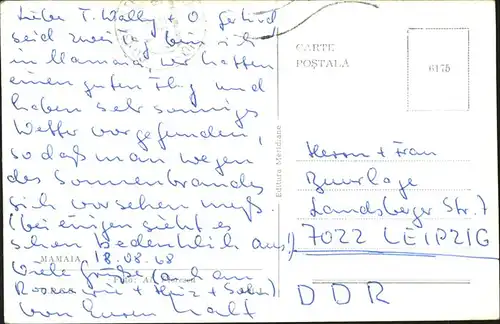 Liebe T. Wally + O. Gerhard
seid zwei Tag bin ich
in Mamaia, wir hatten
einen guten Flug und
haben sehr sonniges
Wetter vorgefunden,
so daß man wegen
des Sonnenbrandes
sich vorsehen muß.
(bei einigen sieht es
schon bedenklich aus!)
MAMAIA 18.08.68
Viele Grüße (auch an
+ Heinz + Sohn)
von Eurem
CARTE
POŞTALĂ
6175
Editura Meridiane
Herrn + Frau
Beurlage
Landsberger Str. 7
7022 LEIPZIG
DDR